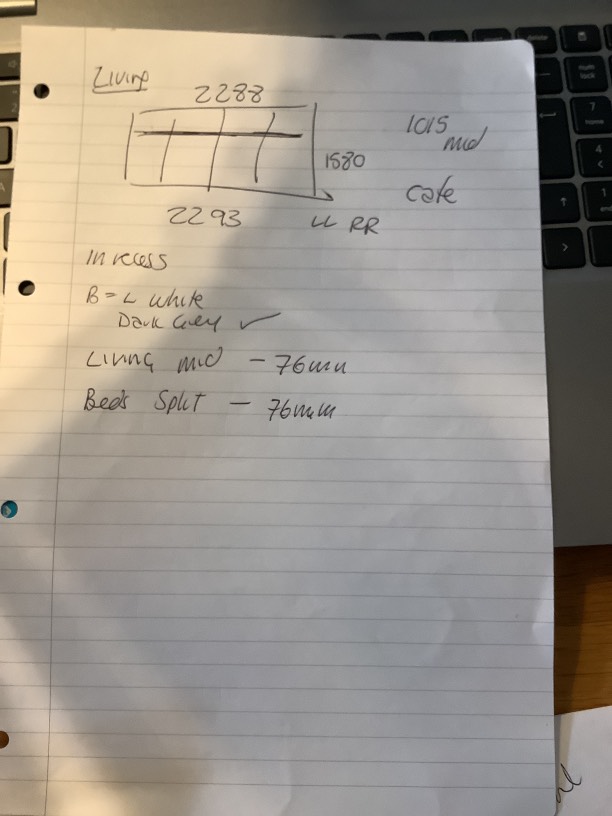 Living
2288
1015
mid
1580
cafe
2293
LL RR
In recess
B = L white
Dark Grey ✓
Living mid - 76mm
Beds Split - 76mm